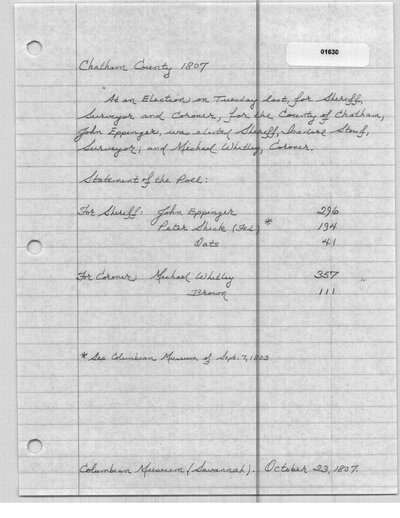 01630
Chatham County 1807
"At an Election on Tuesday last, for Sheriff,
Surveyor and Coroner, for the County of Chatham,
John Eppinger, was elected Sheriff, Isadore Stouf,
Surveyor; and Michael Whitley, Coroner.
Statement of the Poll:
For Sheriff: John Eppinger 296
Peter Shick (Fed.) * 194
Oats 41
For Coroner: Michael Whitley 357 "
Brown 111
* See Columbian Museum of Sept. 7, 1803
Columbian Museum (Savannah). October 23, 1807.